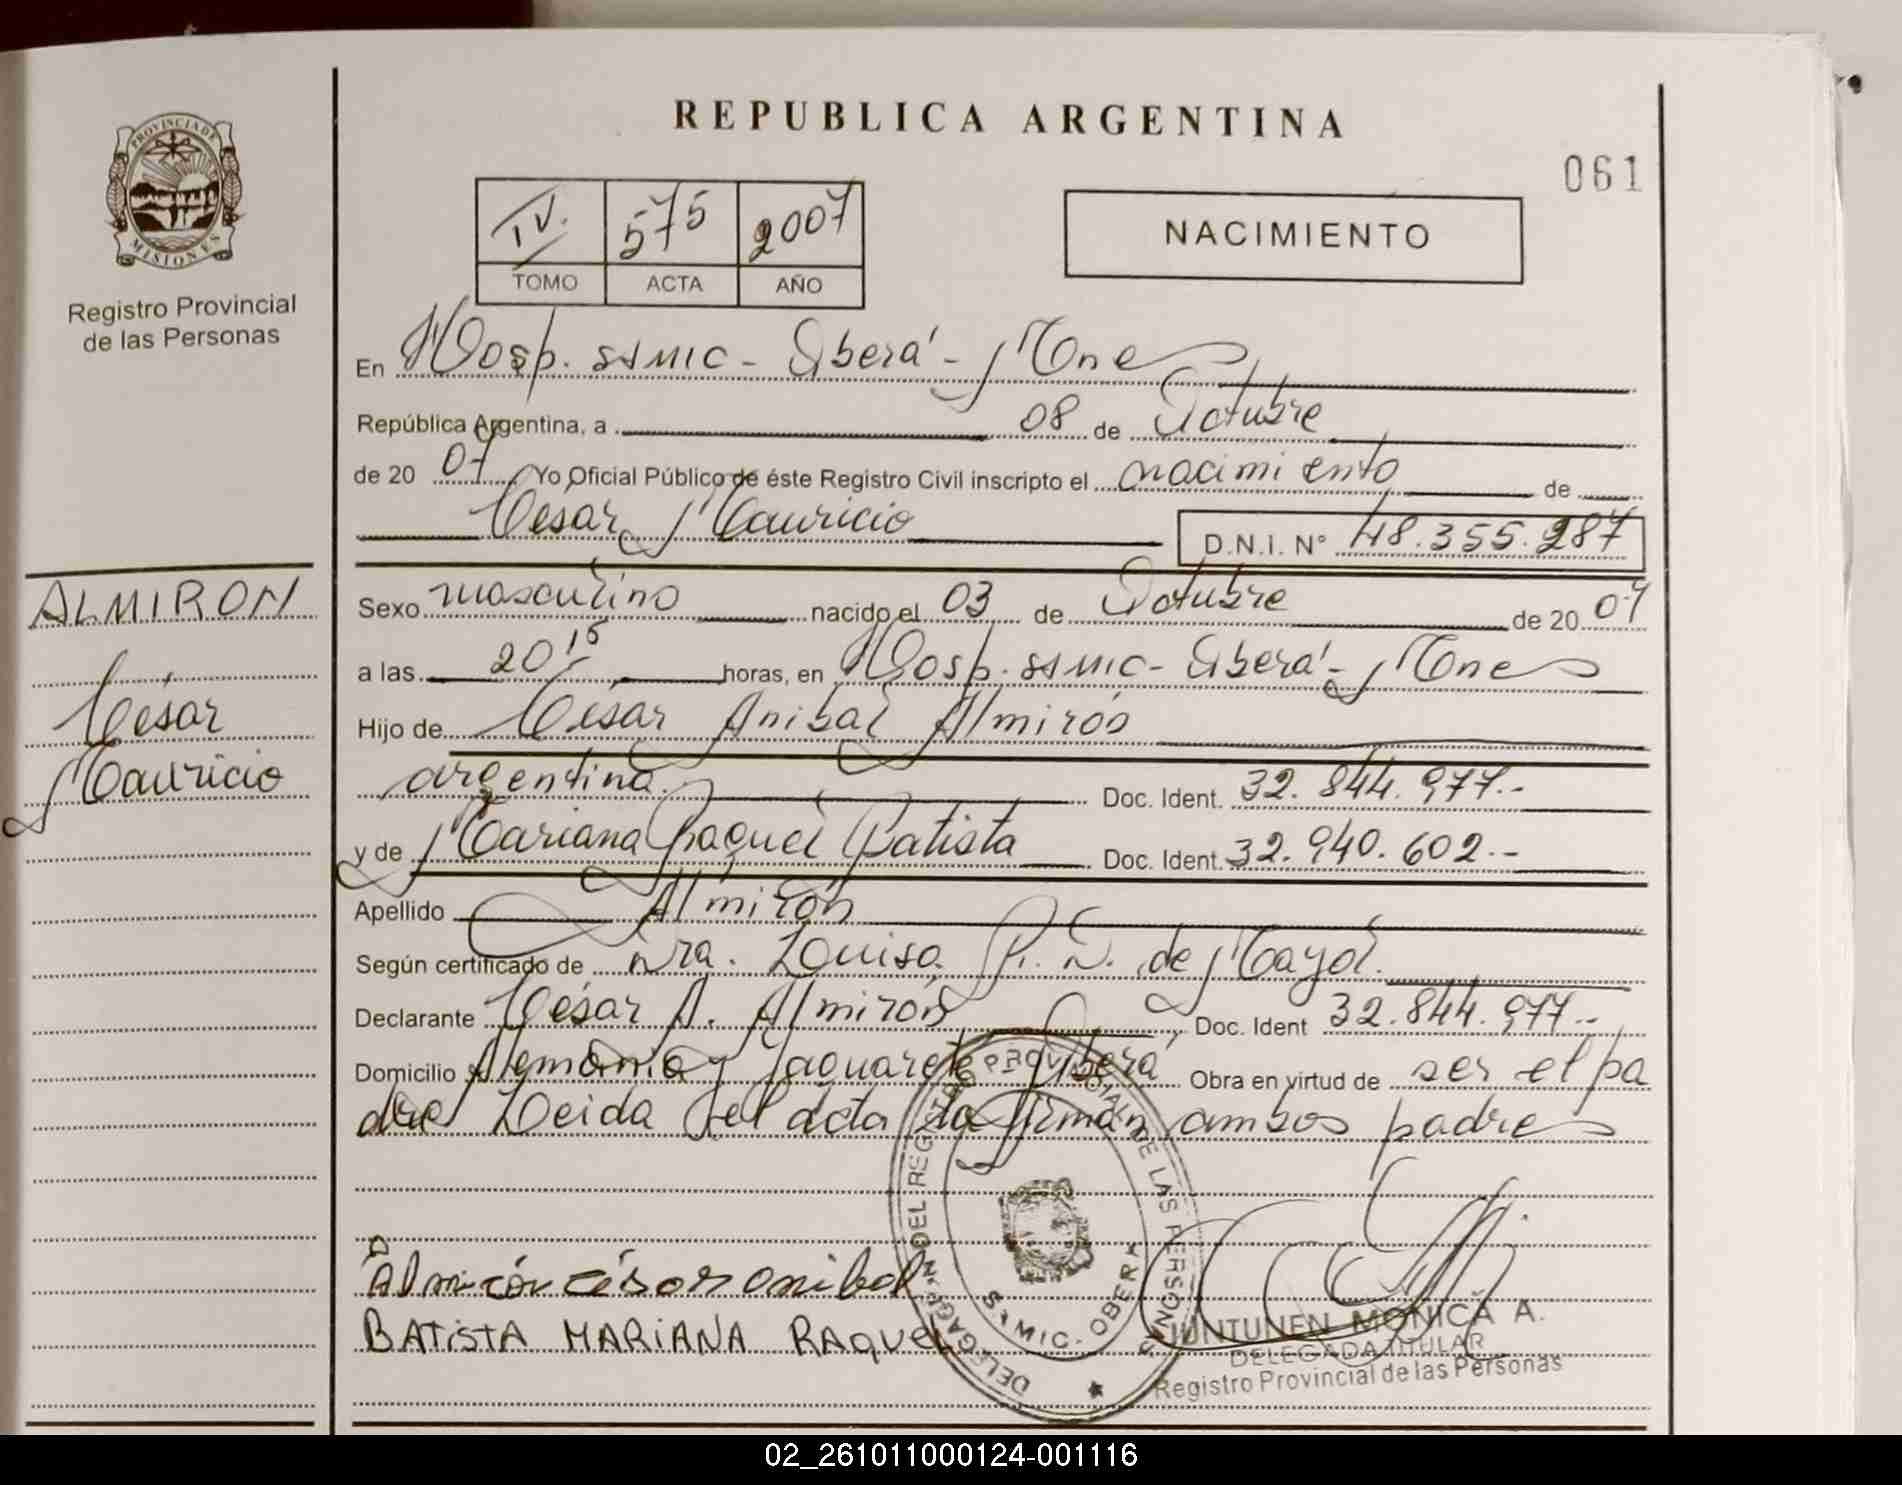 REPUBLICA ARGENTINA
061
PROVINCIA DE
MISIONES
Registro Provincial
de las Personas
IV. 575 2007
TOMO ACTA AÑO
NACIMIENTO
En Hosp. SAMIC - Oberá - Mnes
República Argentina, a 08 de Octubre
de 20 07 Yo Oficial Público de éste Registro Civil inscripto el nacimiento de
César Mauricio D.N.I. N° 48.355.287
ALMIRON
César
Mauricio
Sexo masculino nacido el 03 de Octubre de 20 07
a las 20 15 horas, en Hosp. SAMIC - Oberá - Mnes
Hijo de César Anibal Almirón
argentina. Doc. Ident. 32.844.977.-
y de Mariana Raquel Batista Doc. Ident. 32.940.602.-
Apellido Almirón
Según certificado de Dra. Louisa R. N. de Mayol.
Declarante César A. Almirón, Doc. Ident 32.844.977.-
Domicilio Alemania y Yaguareté Oberá Obra en virtud de ser el pa
dre Leida el acta la firman ambos padres
Almirón césar anibal
BATISTA MARIANA RAQUEL
DELEGACION DEL REGISTRO PROVINCIAL DE LAS PERSONAS
SAMIC - OBERA
JUNTUNEN MONICA A.
DELEGADA TITULAR
Registro Provincial de las Personas
02_261011000124-001116